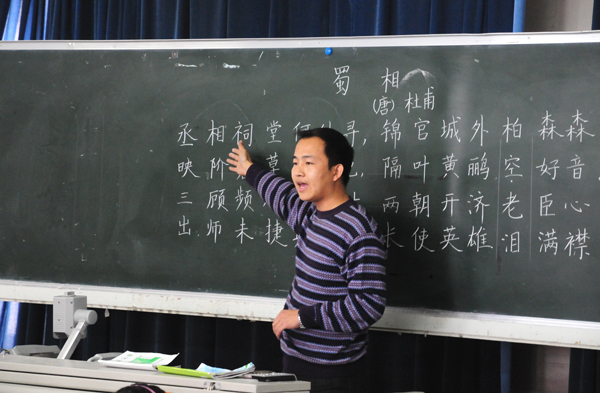 蜀 相
(唐) 杜甫
丞相祠堂何处寻，锦官城外柏森森
映阶 草 隔叶黄鹂空好音。
三顾频 两朝开济老臣心
出师未捷 长使英雄泪满襟。